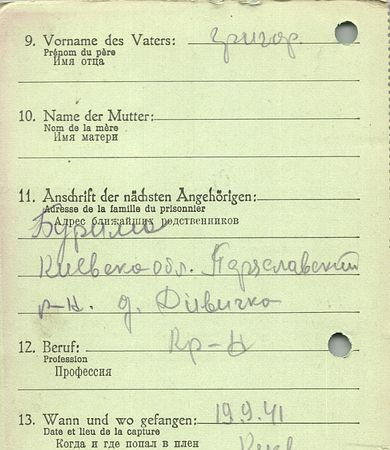 9. Vorname des Vaters: Григор.
Prénom du père
Имя отца
10. Name der Mutter:
Nom de la mère
Имя матери
11. Anschrift der nächsten Angehörigen:
Adresse de la famille du prisonnier
Адрес ближайших родственников
Бурима
Киевско обл. Переславский
р-н. д. Дивичко
12. Beruf: Кр-н
Profession
Профессия
13. Wann und wo gefangen: 19.9.41
Date et lieu de la capture
Когда и где попал в плен Киев